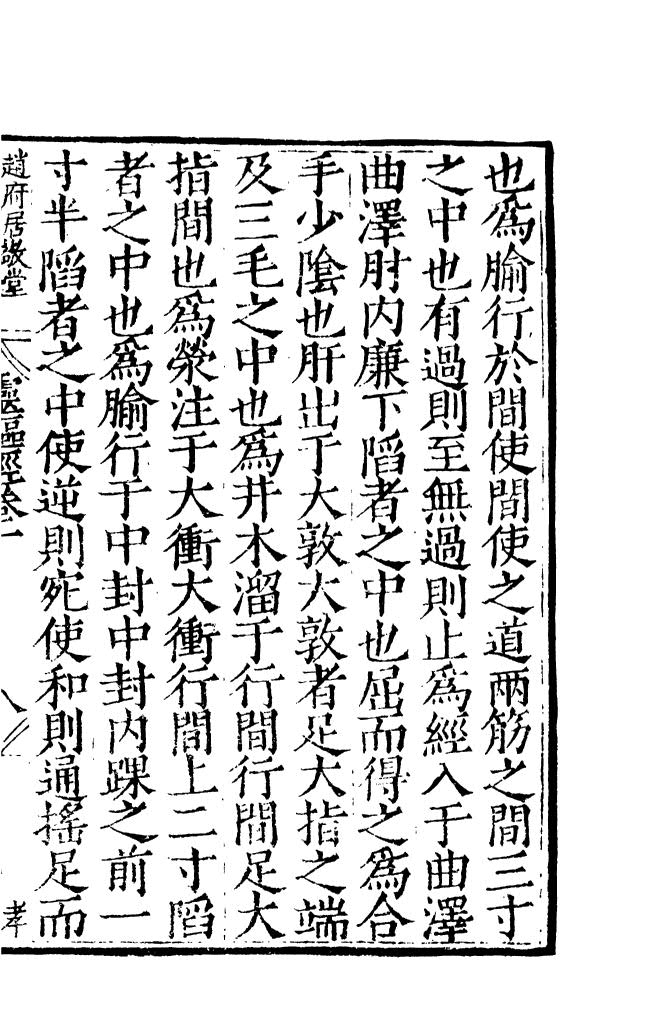 也爲腧行於間使間使之道兩筋之間三寸
之中也有過則至無過則止爲經入于曲澤
曲澤肘内廉下陷者之中也屈而得之爲合
手少陰也肝出于大敦大敦者足大指之端
及三毛之中也爲井木溜于行間行間足大
指間也爲滎注于大衝大衝行間上二寸陷
者之中也爲腧行于中封中封内踝之前一
寸半陷者之中使逆則宛使和則通搖足而
趙府居敬堂
靈樞經卷一
八
孝